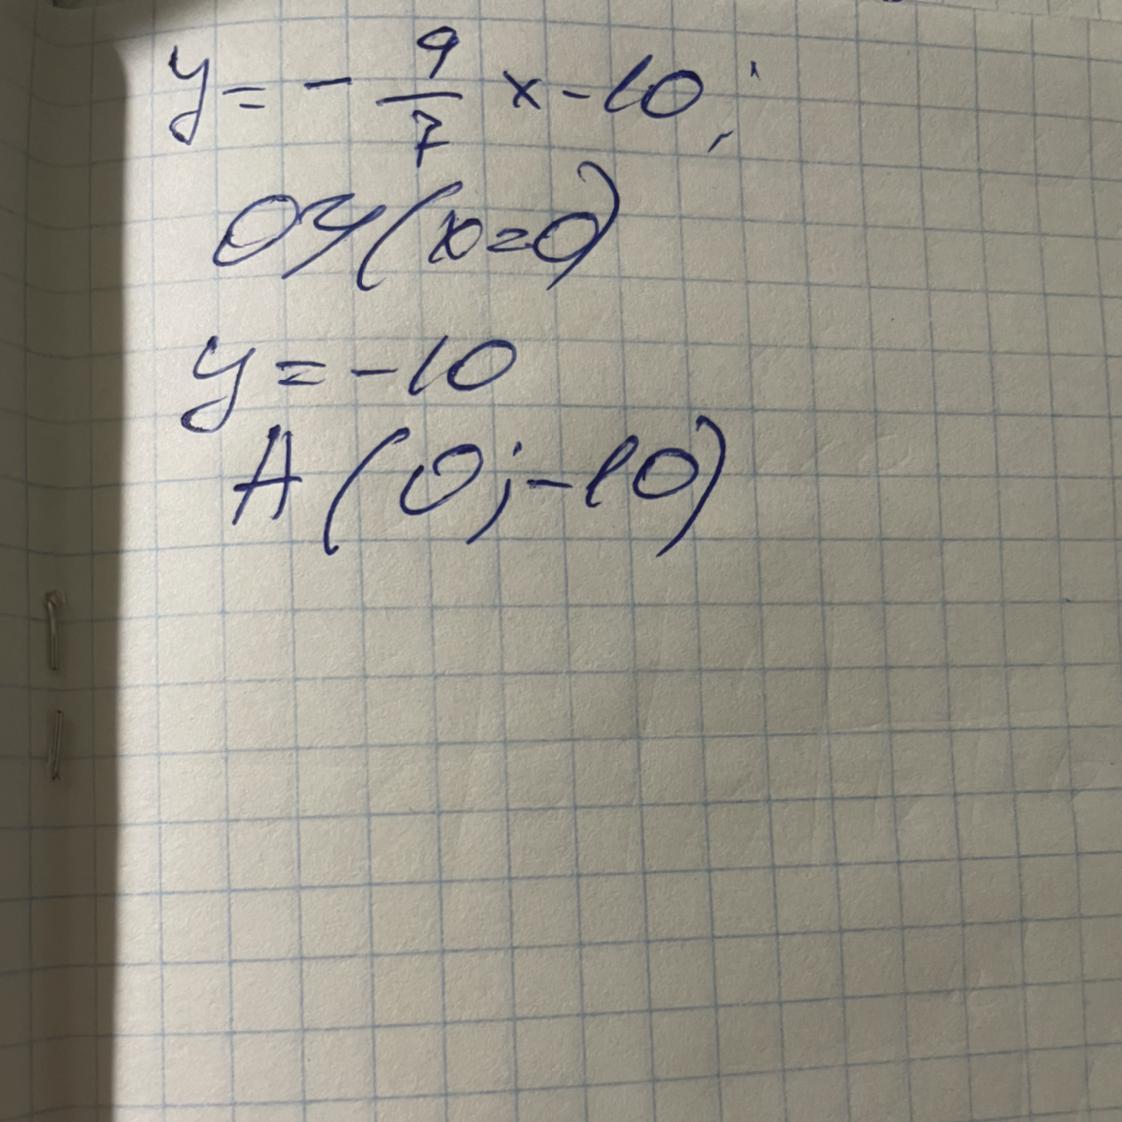 y = - 9/7 x - 10;
OY (x=0)
y = -10
A (0; -10)